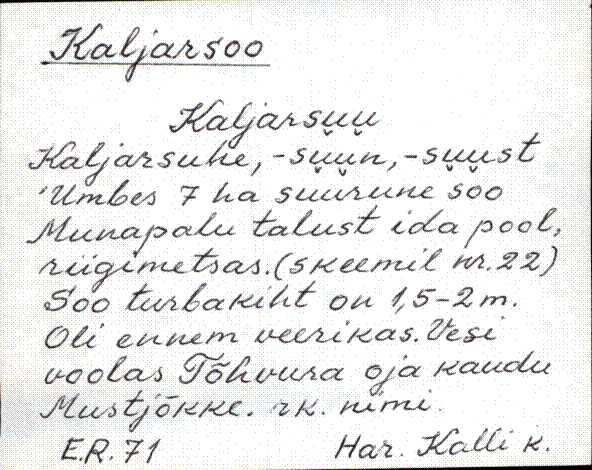 Kaljarsoo
Kaljarsuu
Kaljarsuhe, -suün, -suust
Umbes 7 ha suurune soo
Munapalu talust ida pool,
riigimetsas. (skeemil nr. 22)
Soo turbakiht on 1,5-2 m.
Oli ennem veerikas. Vesi
voolas Tõhvura oja kaudu
Mustjõkke. rk. nimi.
E.R. 71 Har. Kalli k.